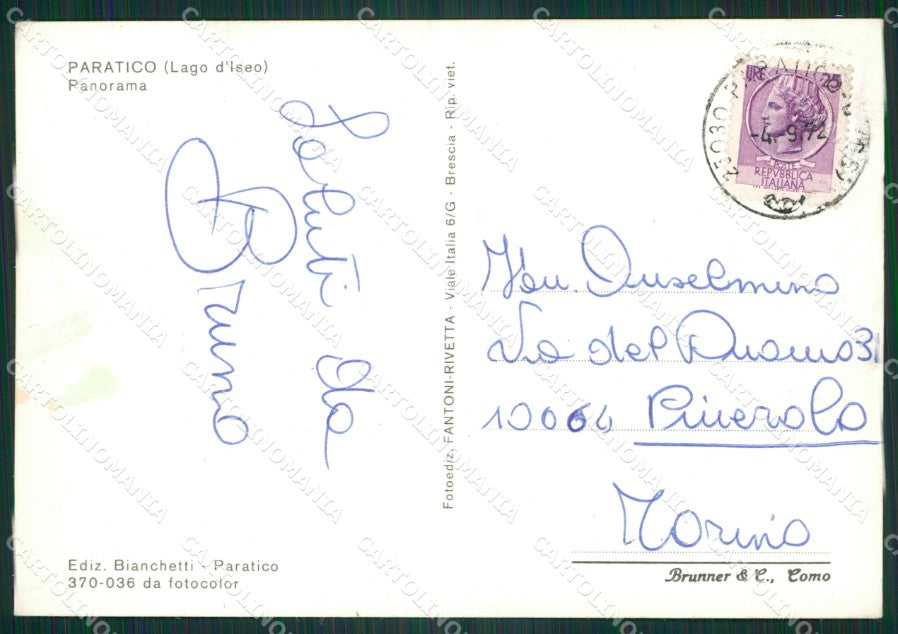 PARATICO (Lago d'Iseo)
Panorama
Saluti da
Bruno
Ediz. Bianchetti - Paratico
370-036 da fotocolor
Fotoediz. FANTONI-RIVETTA - Viale Italia 6/G - Brescia - Rip. viet.
LIRE 25
-4.-9.72
25030
REPVBBLICA
ITALIANA
Anselmino
Via del Duomo 31
10064 Pinerolo
Torino
Brunner & C., Como
CARTOLINOMANIA